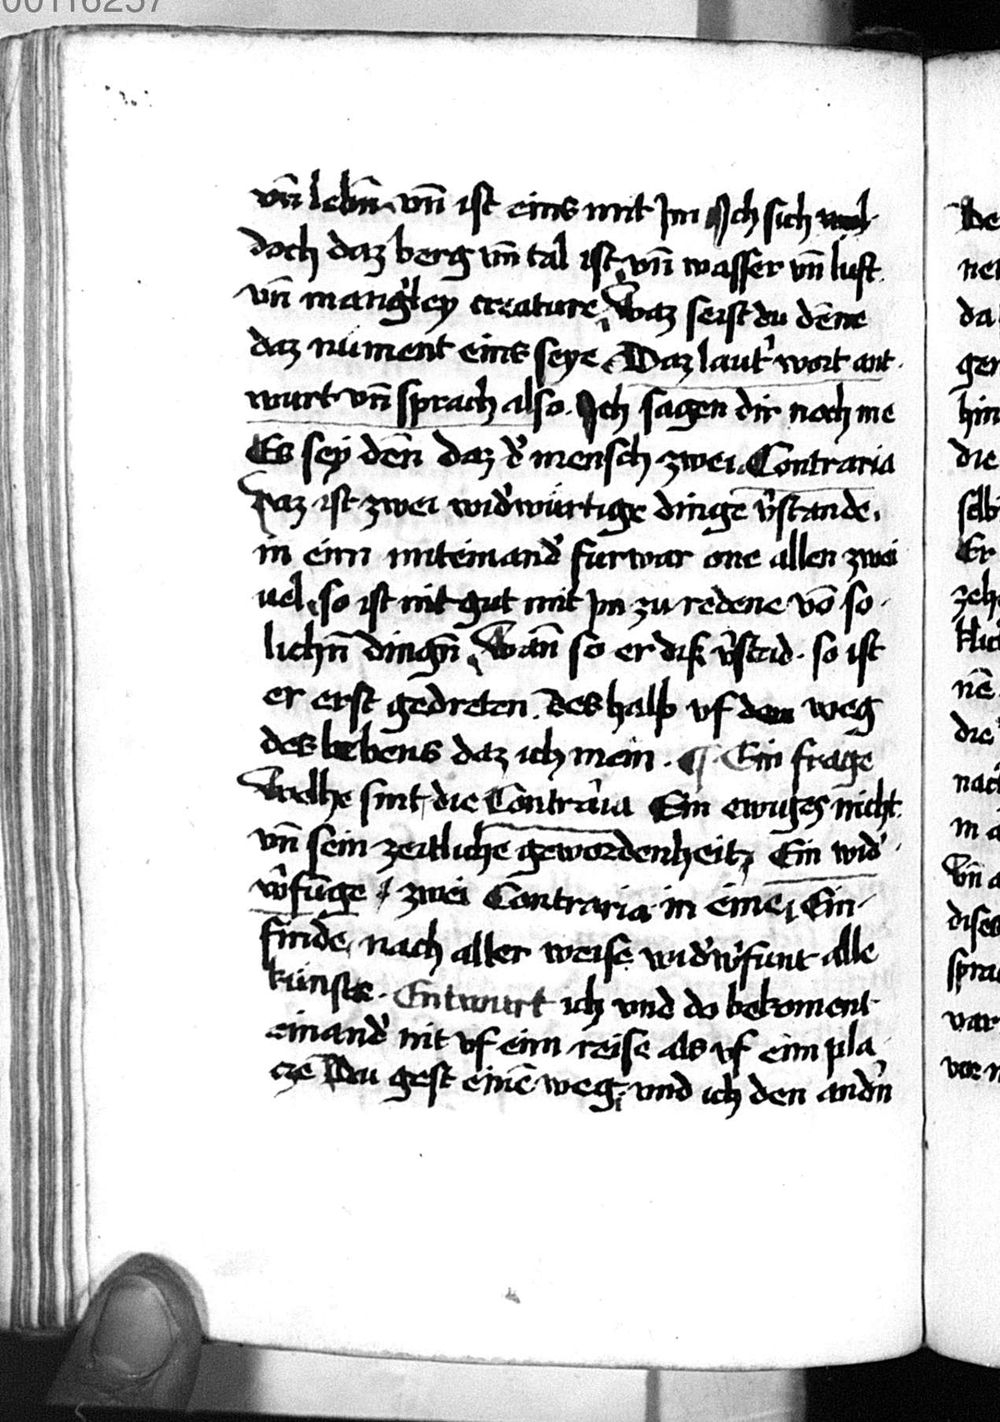 00116257
vn̄ lebn̄ vn̄ ist eins mit Jm Jch sich wol
doch daz berg vn̄ tal ist vn̄ wasser vn̄ luft
vn̄ mang'ley creature, Waz seist du dēne
daz nüment eins seye. Daz laut' wort ant
wurt vn̄ sprach also. Jch sagen dir noch me
Es sey den̄ daz d' mensch zwei Contraria
Daz ist zwei wid'würtige dinge v'stande.
in eim miteinand' furwar one allen zwei
uel, so ist nit gut mit Jm zu redene vō so
lichn̄ dingn̄, Wan̄ so er diß v'stad. so ist
er erst gedreten. deshalb vf den weg
des lebens daz ich mein. ¶ Ein frage
Welhe sint die Contra'ia Ein ewiges nicht
vn̄ sein zeitliche gewordenheit, Ein wid'
v'fuge / zwei Contraria in eine, Ein
finde, nach aller weise wid'v'funt alle
künste. Entwurt ich vnd do bekoment
einand' nit vf eim reise als vf eim pla
cze Du gest eine weg, vnd ich den andn̄